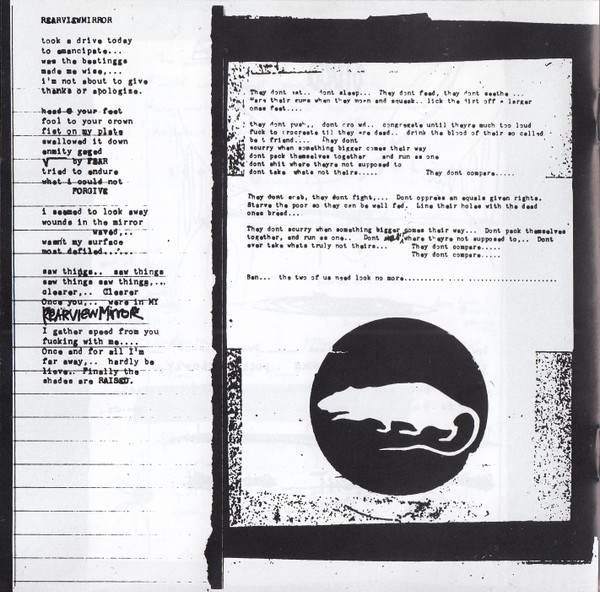 REARVIEWMIRROR
took a drive today
to emancipate...
was the beatings
made me wise,...
i'm not about to give
thanks or apologise.
head @ your feet
fool to your crown
fist on my plate
swallowed it down
enmity gaged
by FEAR
tried to endure
what i could not
FORGIVE
i seemed to look away
wounds in the mirror
waved,..
wasnt my surface
most defiled...
saw things.. saw things
saw things saw things,...
clearer,.. Clearer
Once you,.. were in MY
REARVIEWMIRROR
I gather speed from you
fucking with me....
Once and for all I'm
far away,.. hardly be
lieve.. Finally the
shades are RAISED.
They dont eat.. dont sleep... They dont feed, they dont seethe ...
Bare their gums when they moan and squeak.. lick the dirt off a larger
ones feet....
they dont push,, dont crowd.. congregate until theyre much too loud
fuck to procreate til they are dead.. drink the blood of their so called
be t friend.... They dont
scurry when something bigger comes their way
dont pack themselves together and run as one
dont shit where theyre not supposed to
dont take whats not theirs..... They dont compare.....
They dont scab, they dont fight,... Dont oppress an equals given rights.
Starve the poor so they can be well fed. Line their holes with the dead
ones bread...
They dont scurry when something bigger comes their way... Dont pack themselves
together, and run as one.. Dont where theyre not supposed to,.. Dont
ever take whats truly not theirs... They dont compare....
They dont compare....
Ben... the two of us need look no more...................